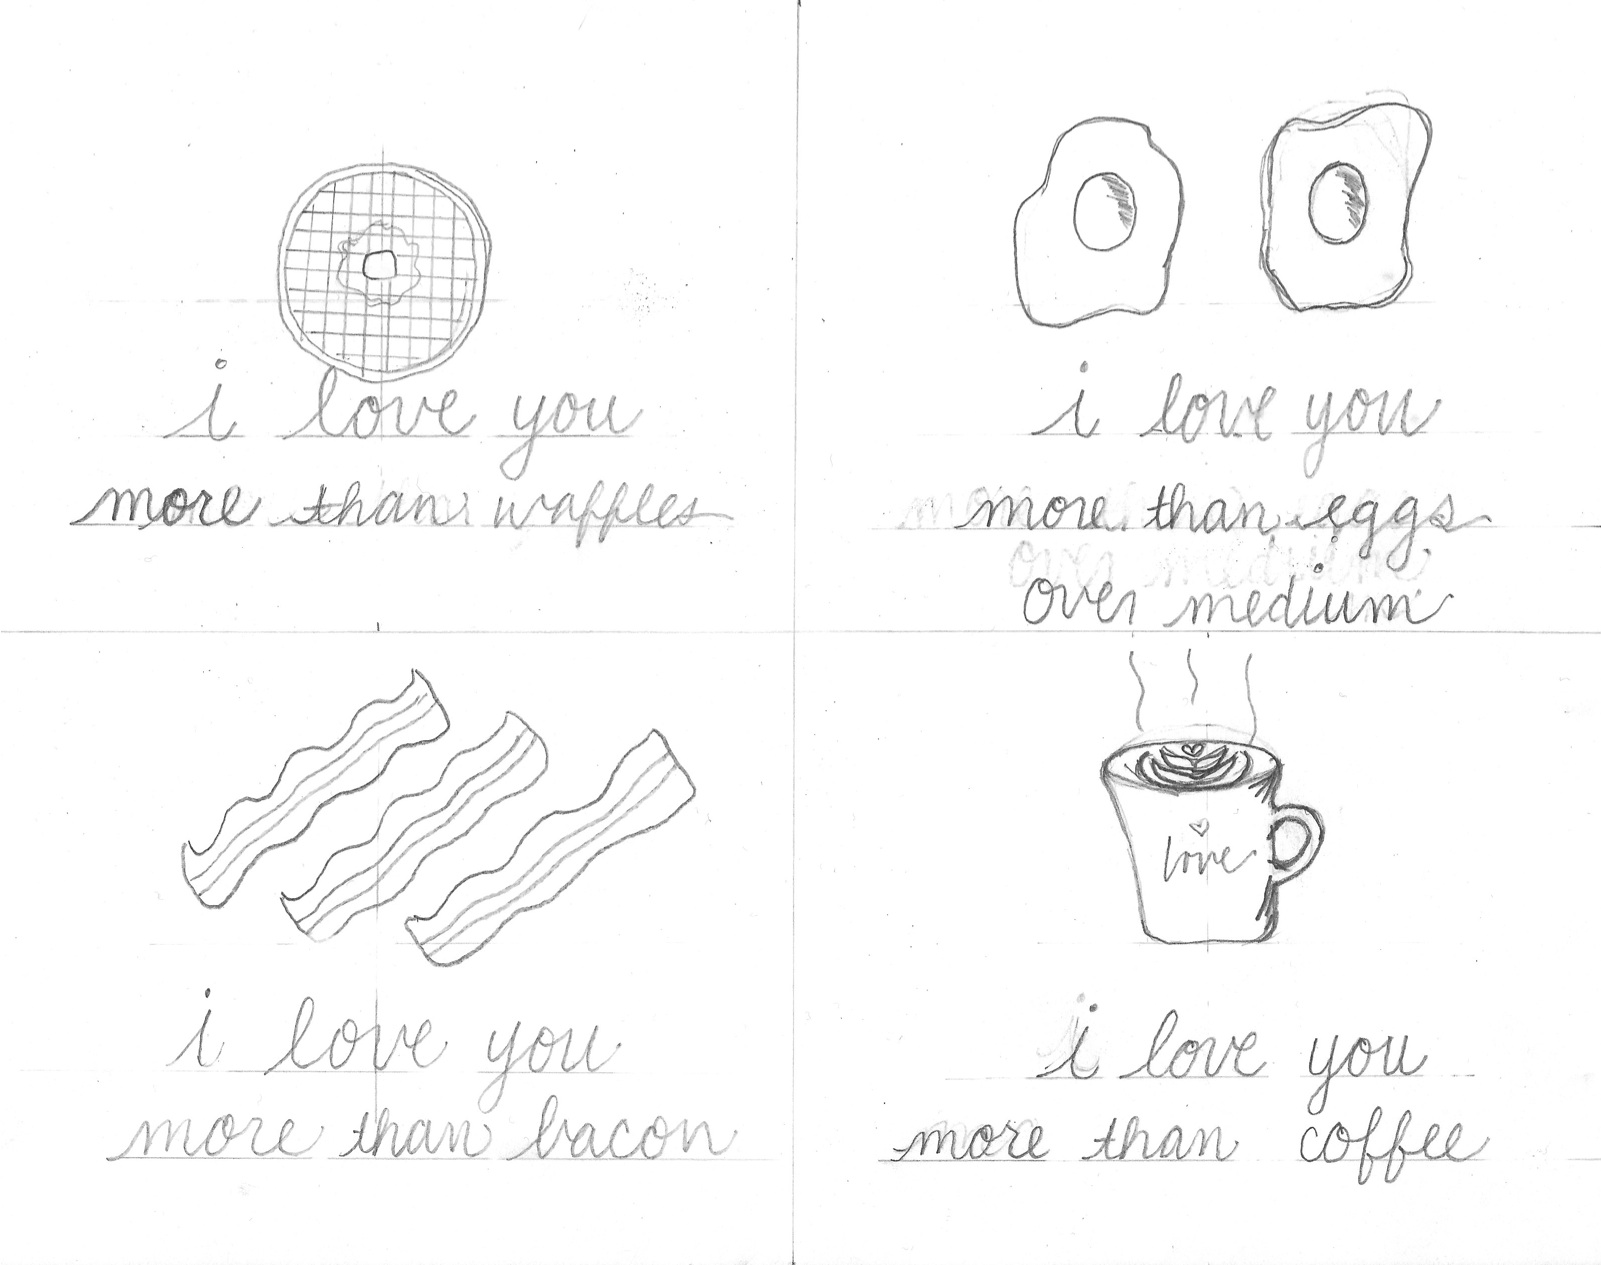 i love you
more than waffles
i love you
more than eggs
over medium
i love you
more than bacon
love
i love you
more than coffee